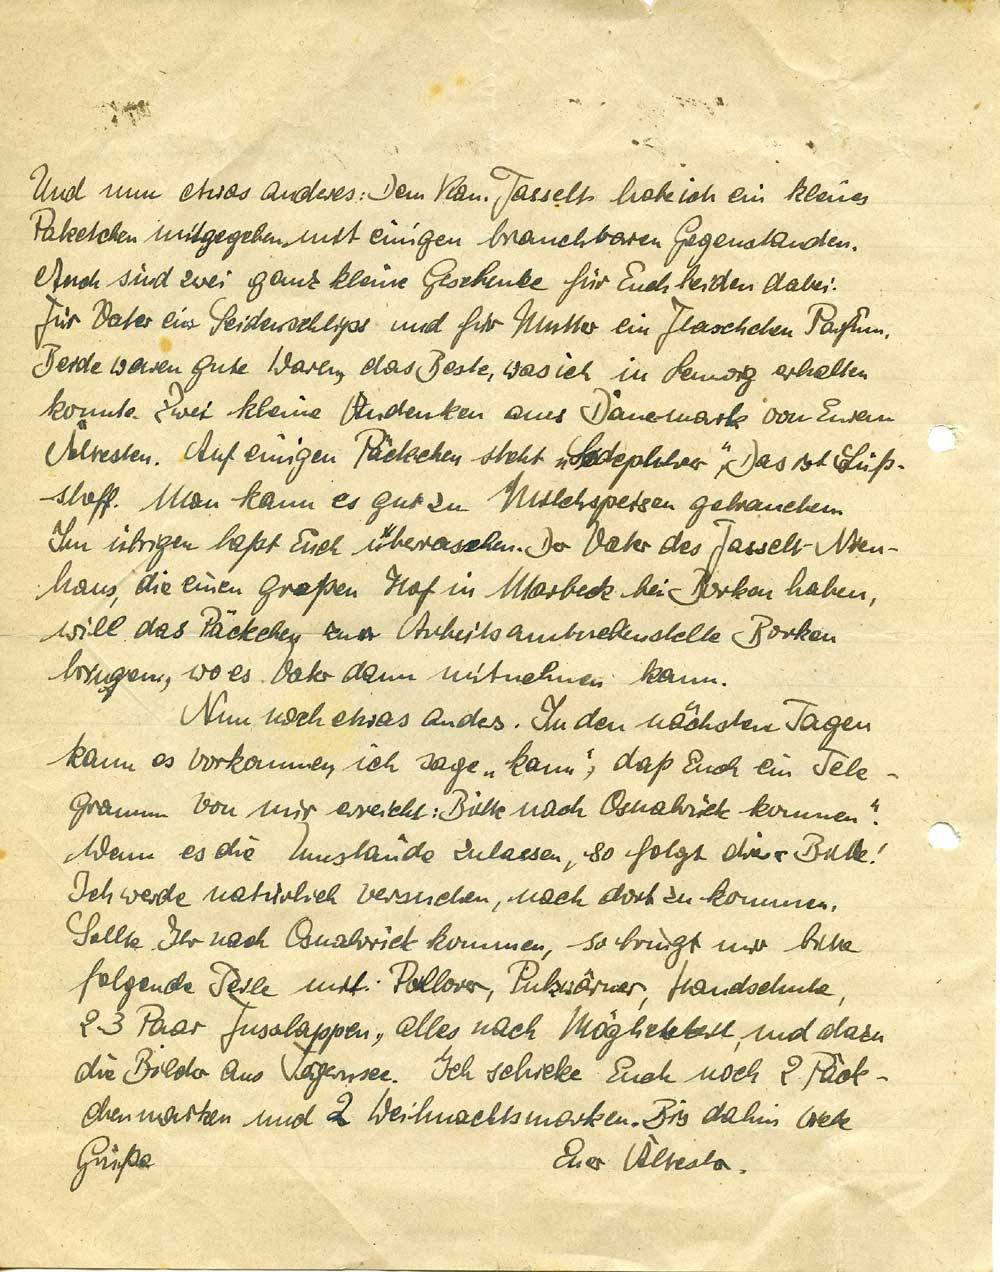 Und nun etwas anderes: Dem Kam. Tasselt habe ich ein kleines
Paketchen mitgegeben mit einigen brauchbaren Gegenständen.
Auch sind zwei ganz kleine Geschenke für Euch beiden dabei.
Für Vater ein Seidenschlips und für Mutter ein Flaschchen Parfüm.
Beide waren gute Waren, das Beste, was ich in erhalten
konnte. Zwei kleine Andenken aus Dänemark von Eurem
Ältesten. Auf einigen Päckchen steht Das ist Süß-
stoff. Man kann es gut zu Milchspeisen gebrauchen.
Im übrigen laßt Euch überraschen. Der Vater des Tasselt-Nien-
haus, die einen großen Hof in Marbeck bei Borken haben,
will das Päckchen zur Arbeitsamtnebenstelle Borken
bringen, wo es Vater dann mitnehmen kann.
Nun noch etwas anders. In den nächsten Tagen
kann es vorkommen, ich sage „kann“, daß Euch ein Tele-
gramm von mir erreicht: Bitte nach Osnabrück kommen“.
Wenn es die Umstände zulassen, so folgt dieser Bitte!
Ich werde natürlich versuchen, nach dort zu kommen.
Sollte Ihr nach Osnabrück kommen, so bringt mir bitte
folgende Teile mit: Pullover, Pulswärmer, Handschuhe,
2-3 Paar Fusslappen, alles nach Möglichkeit, und dazu
die Bilder aus Tegernsee. Ich schicke Euch noch 2 Päck-
chenmarken und 2 Weihnachtsmarken. Bis dahin viele
Grüße Euer Ältester.